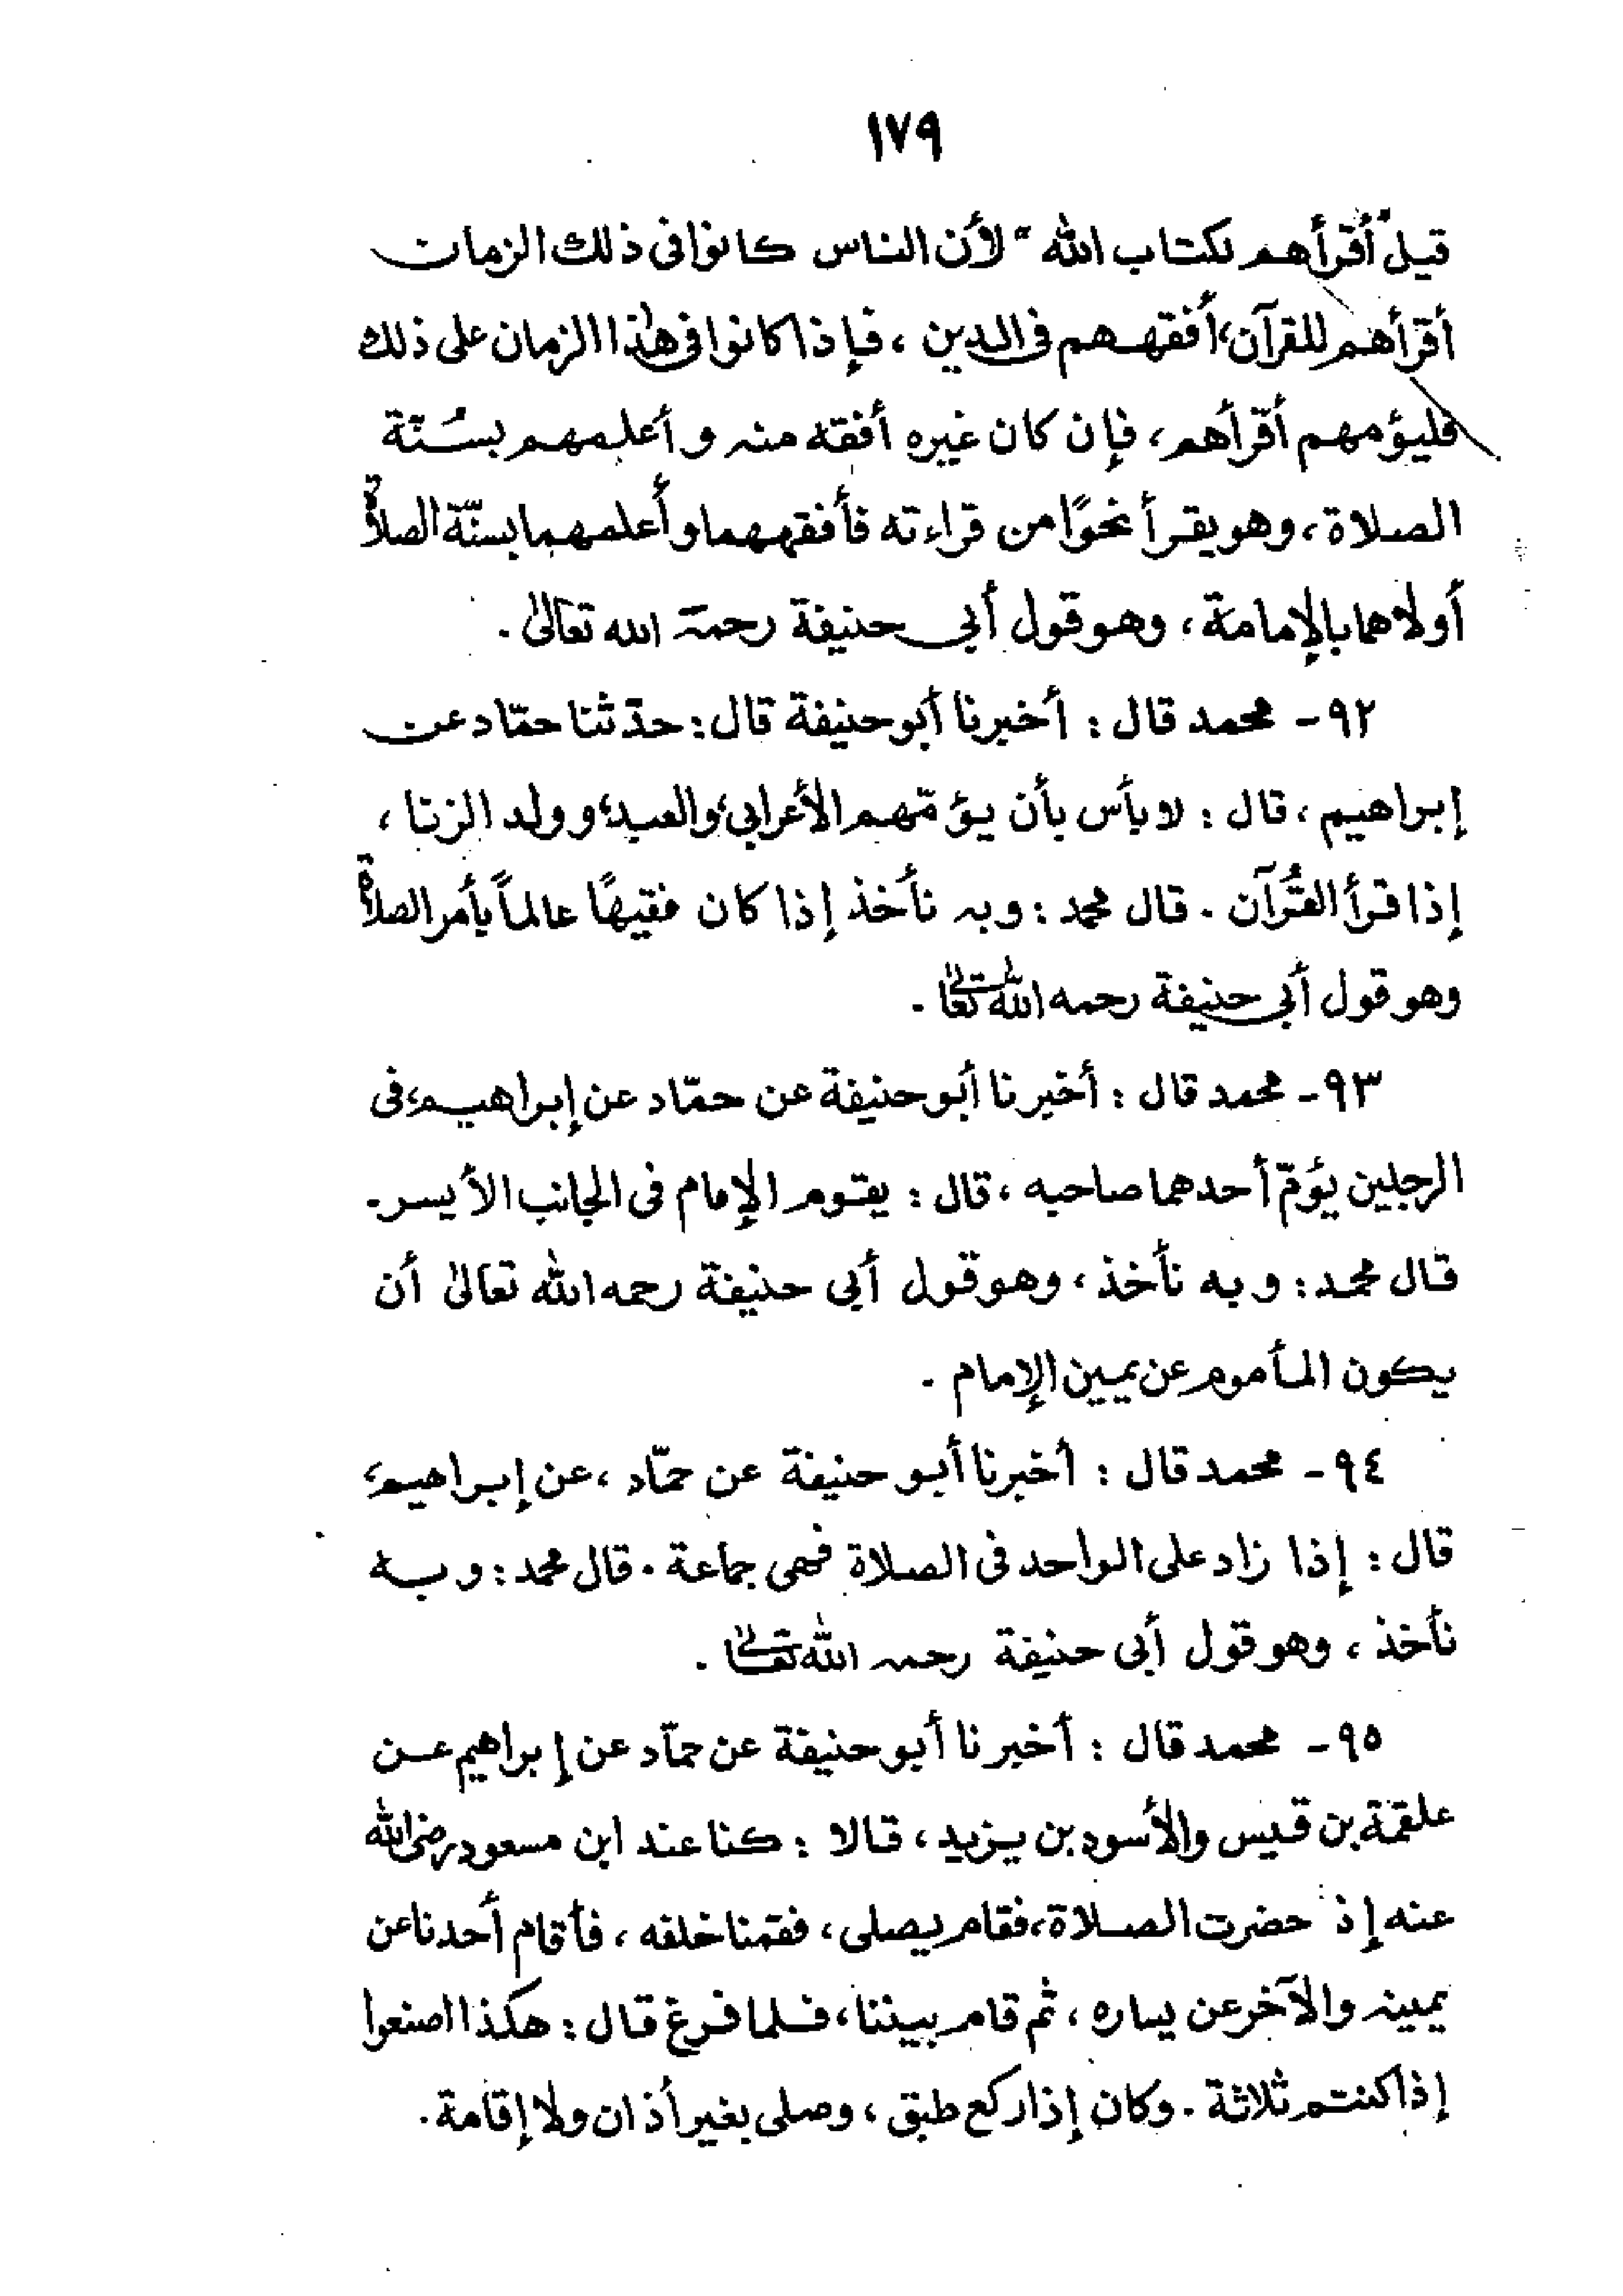 ١٧٩
قيل "أقرأهم لكتاب الله" لأن الناس كانوا فى ذلك الزمان
أقرأهم للقرآن، أفقههم فى الدين، فإذا كانوا فى هٰذا الزمان على ذلك
فليؤمهم أقرأهم، فإن كان غيره أفقه منه وأعلمهم بسُنّة
الصلاة، وهو يقرأ نحوًا من قراءته فأفقههما وأعلمهما بسنّة الصلاة
أولاهما بالإمامة، وهو قول أبى حنيفة رحمة الله تعالىٰ.
٩٢- محمد قال: أخبرنا أبو حنيفة قال: حدّثنا حمّاد عن
إبراهيم، قال: لا بأس بأن يؤمّهم الأعرابى، والعبد، وولد الزنا،
إذا قرأ القُرآن. قال محمد: وبه نأخذ إذا كان فقيهًا عالماً بأمر الصلاة
وهو قول أبى حنيفة رحمه الله تعالىٰ.
٩٣- محمد قال: أخبرنا أبو حنيفة عن حمّاد عن إبراهيم، فى
الرجلين يؤمّ أحدهما صاحبه، قال: يقوم الإمام فى الجانب الأيسر.
قال محمد: وبه نأخذ، وهو قول أبى حنيفة رحمه الله تعالىٰ أن
يكون المأموم عن يمين الإمام.
٩٤- محمد قال: أخبرنا أبو حنيفة عن حمّاد، عن إبراهيم،
قال: إذا زاد على الواحد فى الصلاة فهى جماعة. قال محمد: وبه
نأخذ، وهو قول أبى حنيفة رحمه الله تعالىٰ.
٩٥- محمد قال: أخبرنا أبو حنيفة عن حمّاد عن إبراهيم عن
علقمة بن قيس والأسود بن يزيد، قالا: كنا عند ابن مسعود رضى الله
عنه إذ حضرت الصلاة، فقام يصلى، فقمنا خلفه، فأقام أحدنا عن
يمينه والآخر عن يساره، ثم قام بيننا، فلما فرغ قال: هكذا اصنعوا
إذا كنتم ثلاثة. وكان إذا ركع طبق، وصلى بغير أذان ولا إقامة.